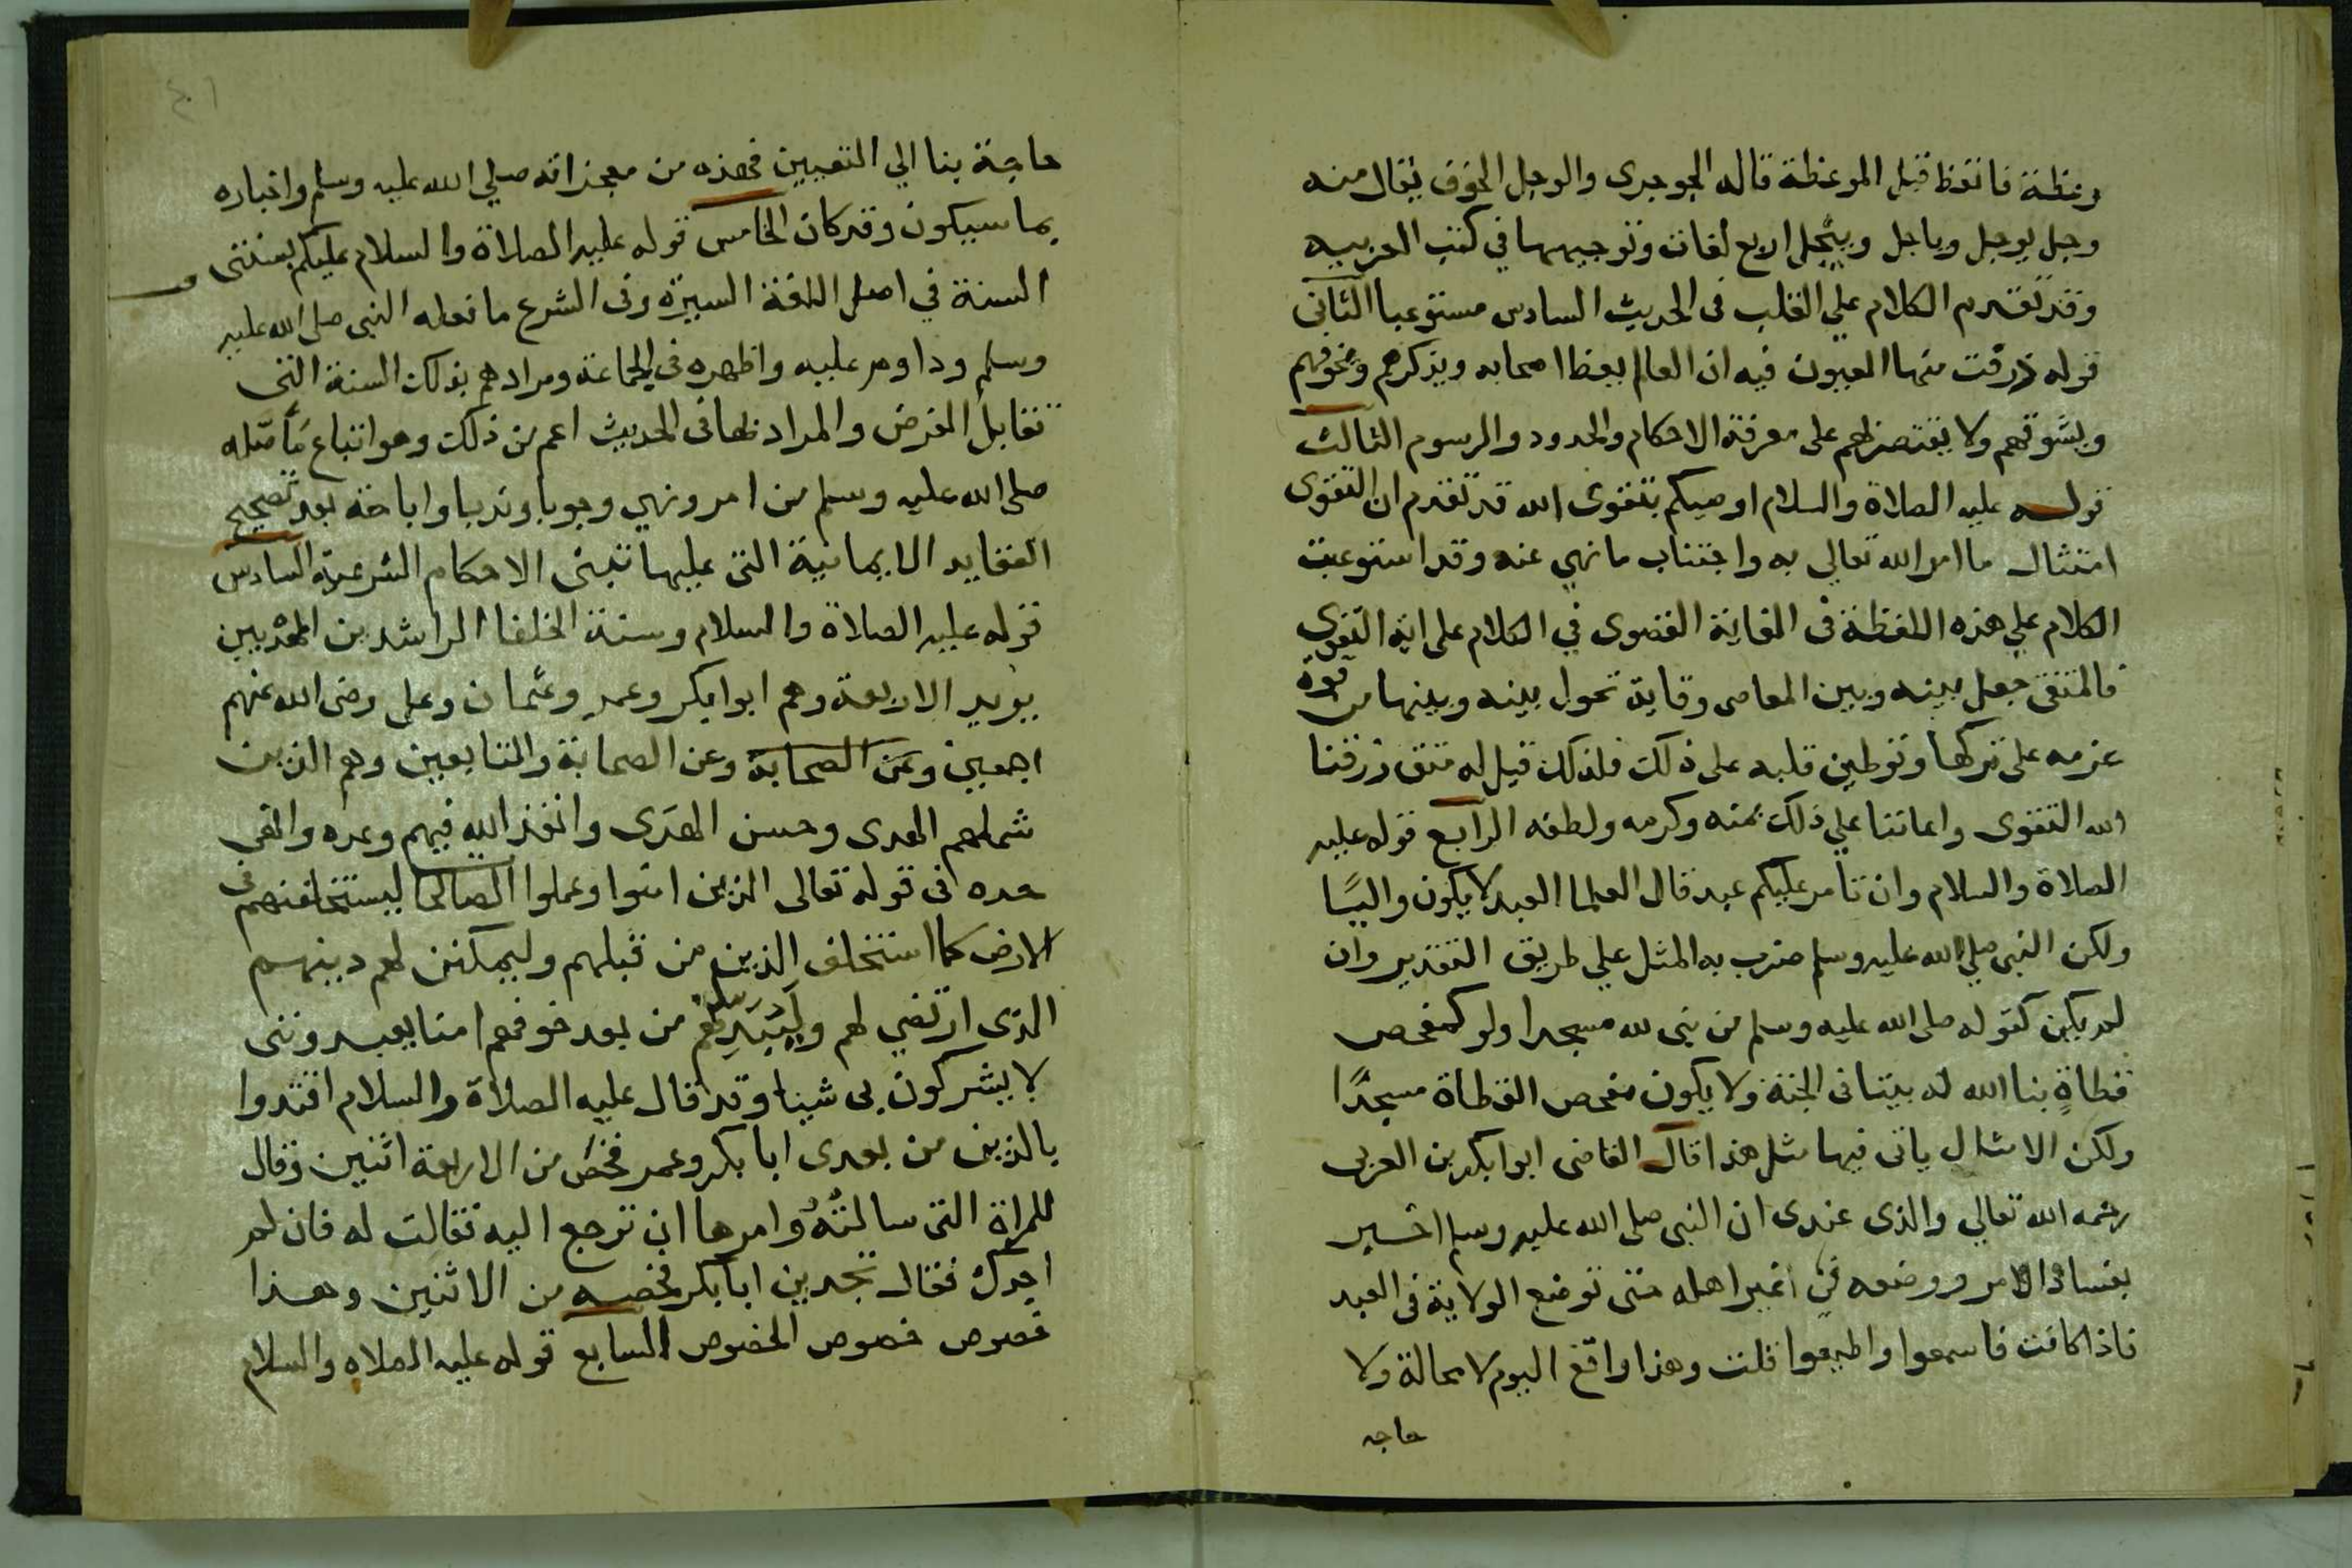 وعظته فاتعظ قبل الموعظة قاله الجوهرى والوجل الخوف يقال منه
وجل يوجل وياجل وييجل اربع لغات وتوجيهها في كتب العربيه
وقد تقدم الكلام علي القلب فى الحديث السادس مستوعبا الثانى
قوله ذرفت منها العيون فيه ان العالم يعظ اصحابه ويذكرهم ويخوفهم
ويشوقهم ولا يقتصر لهم على معرفة الاحكام والحدود والرسوم الثالث
قوله عليه الصلاة والسلام اوصيكم بتقوى الله قد تقدم ان التقوى
امتثال ما امر الله تعالي به واجتناب ما نهي عنه وقد استوعبت
الكلام علي هذه اللفظة فى الغاية القصوى في الكلام على اية التقوى
فالمتقى جعل بينه وبين المعاصى وقاية تحول بينه وبينها من قوة
عزمه على تركها وتوطين قلبه على ذلك فلذلك قيل له متق رزقنا
الله التقوى واعاننا علي ذلك بمنه وكرمه ولطفه الرابع قوله عليه
الصلاة والسلام وان تأمر عليكم عبد قال العلما العبد لا يكون واليًا
ولكن النبى صلي الله عليه وسلم ضرب به المثل علي طريق التقدير وان
لم يكن كقوله صلى الله عليه وسلم من بنى لله مسجدا ولو كمفحص
قطاةٍ بنا الله له بيتا فى الجنة ولا يكون مفحص القطاة مسجدًا
ولكن الامثال ياتى فيها مثل هذا قال القاضى ابوا بكر بن العربى
رحمه الله تعالي والذى عندى ان النبى صلى الله عليه وسلم اخبر
بفساد الامر ووضعه فى غير اهله حتى توضع الولاية فى العبد
فاذا كانت فاسمعوا واطيعوا قلت وهذا واقع اليوم لا محالة ولا
حاجه
حاجة بنا الي التعيين فهذه من معجزاته صلي الله عليه وسلم واخباره
بما سيكون وقد كان الخامس قوله عليه الصلاة والسلام عليكم بسنتى
السنة في اصل اللغة السيرة وفى الشرع ما فعله النبى صلى الله عليه
وسلم وداوم عليه واظهره فى الجماعة ومرادهم بذلك السنة التى
تقابل الفرض والمراد بها فى الحديث اعم من ذلك وهو اتباع
صلى الله عليه وسلم من امر ونهي وجوبا وندبا واباحة بعد تصحيح
العقايد الايمانية التى عليها تبنى الاحكام الشرعية السادس
قوله عليه الصلاة والسلام وسنة الخلفا الراشدين المهديين
يريد الاربعة وهم ابوا بكر وعمر وعثمان وعلى رضى الله عنهم
اجمعين وعن الصحابة وعن الصحابة والتابعين وهم الذين
شملهم الهدى وحسن الهدى وانفذ الله فيهم وعده
فى قوله تعالى الذين امنوا وعملوا الصالحات ليستخلفنهم فى
الارض كما استخلف الذين من قبلهم وليمكنن لهم دينهم
الذى ارتضي لهم وليبدلنهم من بعد خوفهم امنا يعبدوننى
لا يشركون بى شيئا وقد قال عليه الصلاة والسلام اقتدوا
بالذين من بعدى ابا بكر وعمر فخص من الاربعة اثنين وقال
للمراة التى سالته وامرها ان ترجع اليه فقالت له فان لم
اجدك فقال تجدين ابا بكر فخصه من الاثنين وهذا
خصوص خصوص الخصوص السابع قوله عليه الصلاه والسلام